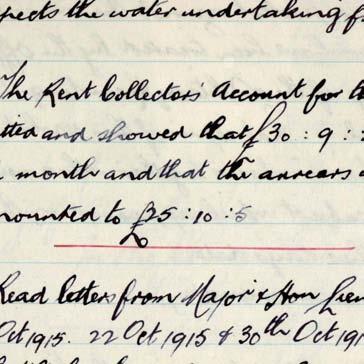 pects the water undertaking f
The Rent Collectors' Account for
tted and showed that £30 : 9 :
month and that the arrears
mounted to £25 : 10 : 5
Read letters from Major & Hon Lieu
Oct 1915. 22 Oct 1915 & 30th Oct 19